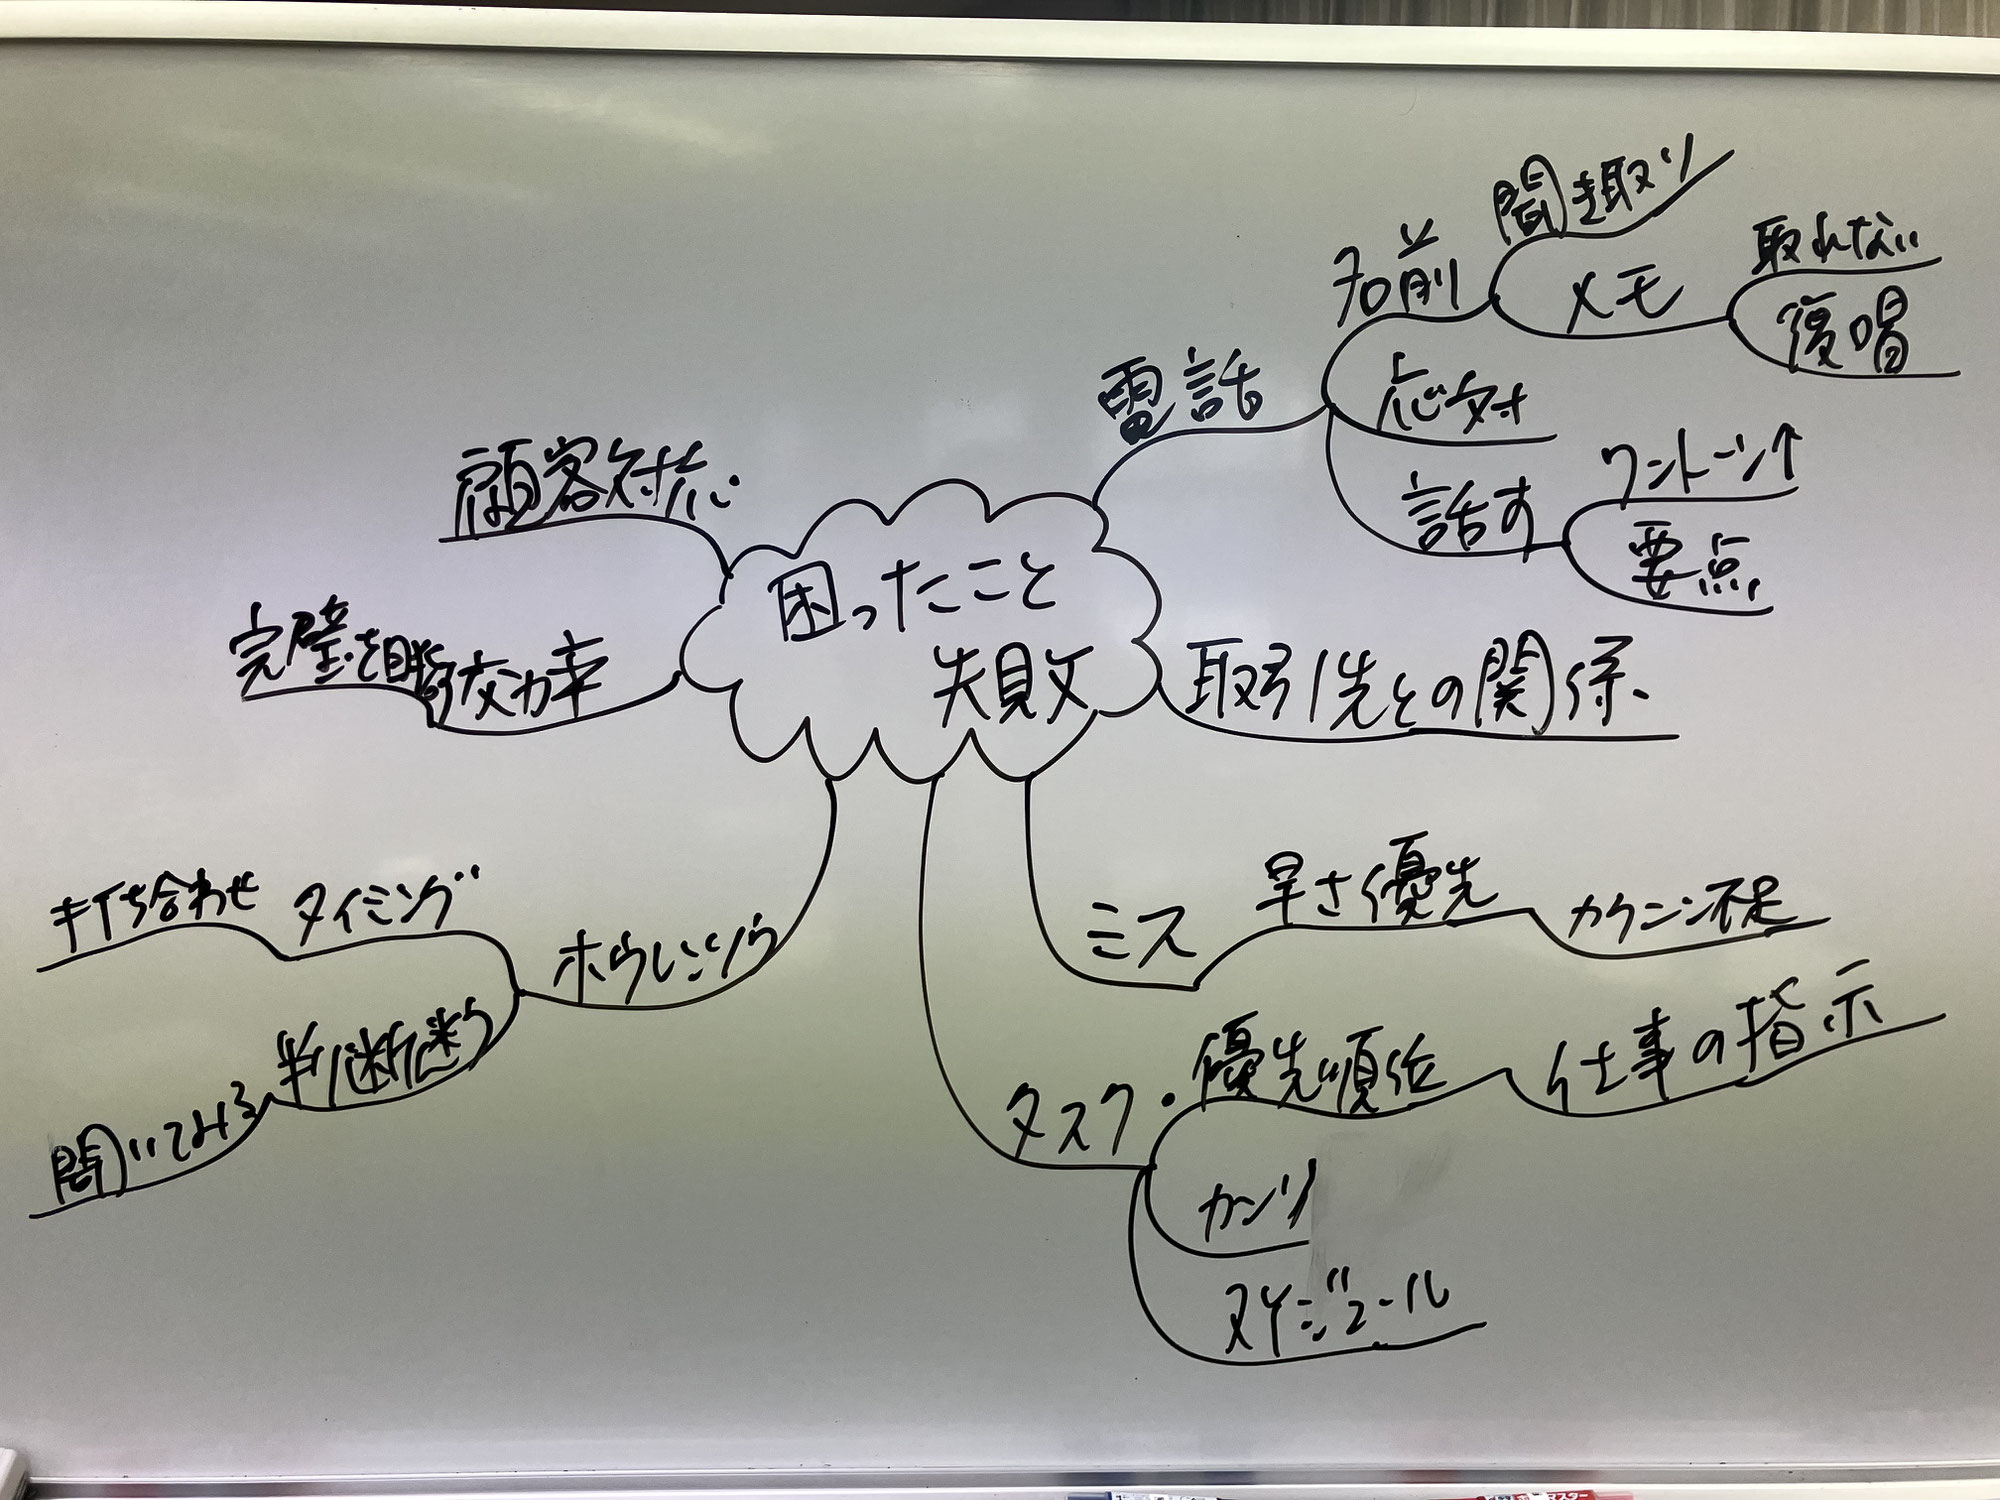 困ったこと
失敗
電話
名前
聞き取り
メモ
取れない
復唱
応対
話す
ワントーン↑
要点
取引先との関係
ミス
早さ優先
カクニン不足
タスク・優先順位
仕事の指示
カンリ
スケジュール
ホウレンソウ
タイミング
打ち合わせ
判断迷う
聞いてみる
効率
完璧を目指す
顧客対応